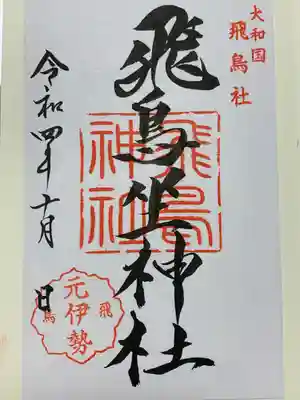 大和国
飛鳥社
飛鳥坐神社
飛鳥
神社
令和四年十月 日
元伊勢
飛鳥